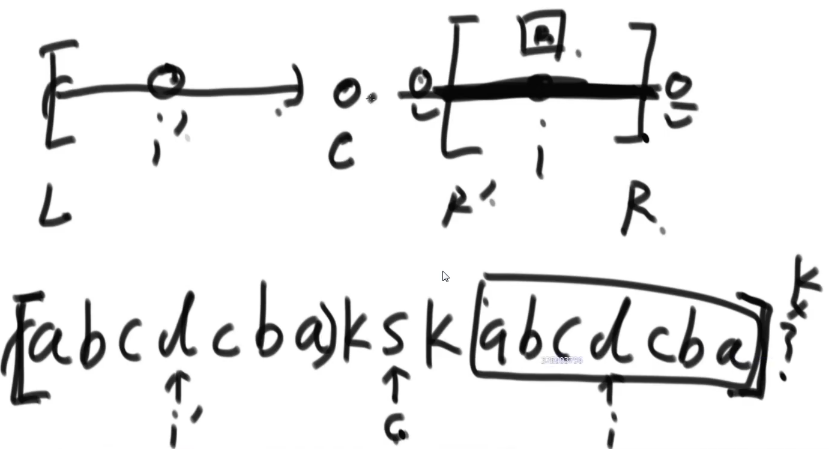 [ ( ) O . [ R . ] O
i' C i
L R' R
[(abcdcba)ksk[abcdcba)] k ?
i' c i